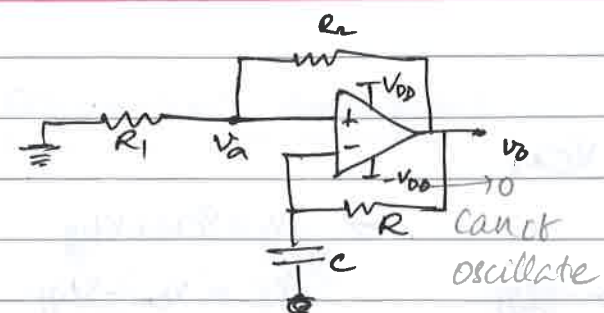 R2
VDD
+
R1
Va
-
vo
-VDD → 0
R
can it
oscillate
C